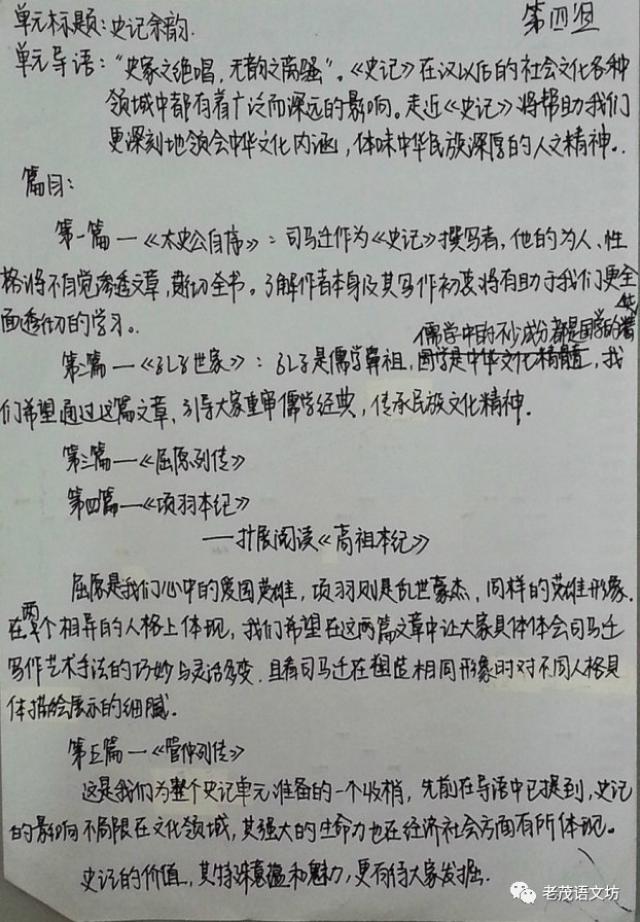 第四组
单元标题：史记余韵.
单元导语：“史家之绝唱，无韵之离骚”。《史记》在汉以后的社会文化各种
领域中都有着广泛而深远的影响。走近《史记》将帮助我们
更深刻地领会中华文化内涵，体味中华民族深厚的人文精神。
篇目：
第一篇—《太史公自序》：司马迁作为《史记》撰写者，他的为人、性
格将不自觉渗透文章，贯切全书。了解作者本身及其写作初衷将有助于我们更全
面透彻的学习。
儒学中的不少成分都是国学的精
第二篇—《孔子世家》：孔子是儒学鼻祖，国学是中华文化精髓，我
们希望通过这篇文章，引导大家重审儒学经典，传承民族文化精神．
第三篇—《屈原列传》
第四篇—《项羽本纪》
—扩展阅读《高祖本纪》
屈原是我们心中的爱国英雄，项羽则是乱世豪杰，同样的英雄形象，
在两个相异的人格上体现，我们希望在这两篇文章中让大家具体体会司马迁
写作艺术手法的巧妙与灵活多变．且看司马迁在塑造相同形象时对不同人格具
体描绘展示的细腻．
第五篇—《管仲列传》
这是我们为整个史记单元准备的一个收梢，先前在导语中已提到，史记
的影响不局限在文化领域，其强大的生命力也在经济社会方面有所体现。
史记的价值，其特殊意蕴和魅力，更有待大家发掘．
老茂语文坊